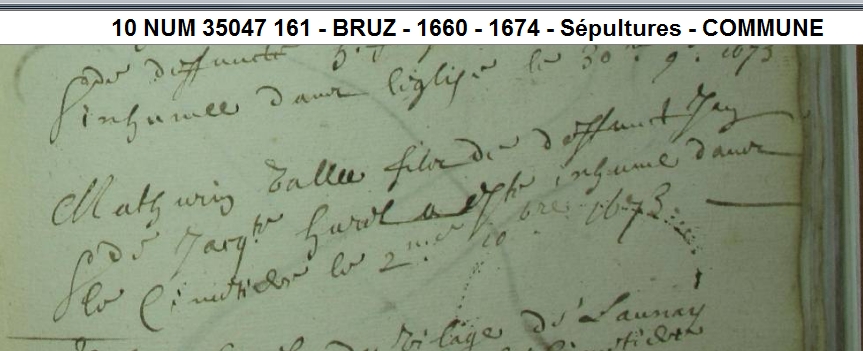 10 NUM 35047 161 - BRUZ - 1660 - 1674 - Sépultures - COMMUNE
& de deffuncte
inhumee dans leglise le 30e 9e 1673
Mathurin Vallee filz de deffunct Jan
& de Jacqte Hurel a esté inhumé dans
le Cimetiere le 2me 10bre 1673
Vilage de Launay